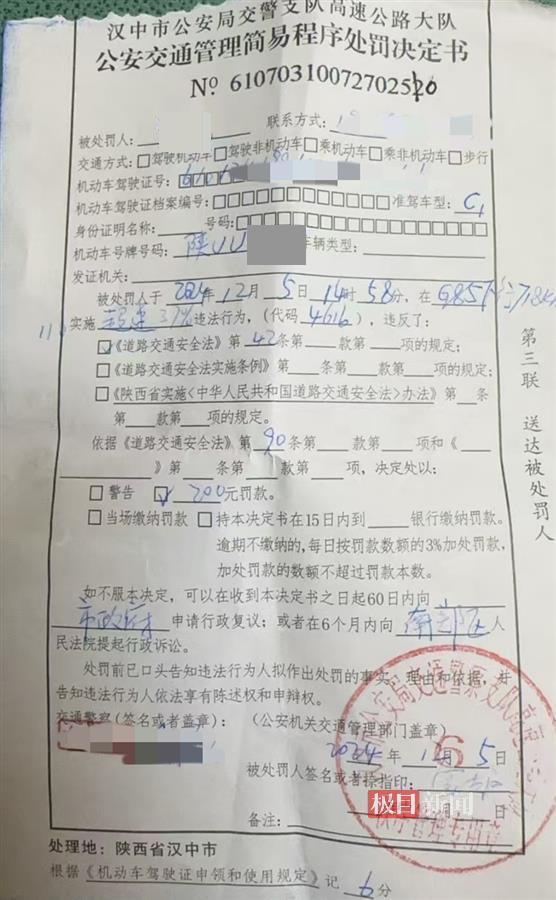 汉中市公安局交警支队高速公路大队
公安交通管理简易程序处罚决定书
№ 6107031007270252
被处罚人： 联系方式：
交通方式：□驾驶机动车□驾驶非机动车□乘机动车□乘非机动车□步行
机动车驾驶证号：
机动车驾驶证档案编号： 准驾车型：C1
身份证明名称： 号码：
机动车号牌号码：陕UU 车辆类型：
发证机关：
被处罚人于2024年12月5日14时58分，在G85
实施超速37%违法行为，（代码4616），违反了：
☑《道路交通安全法》第42条第 款第 项的规定；
□《道路交通安全法实施条例》第 条第 款第 项的规定；
□《陕西省实施〈中华人民共和国道路交通安全法〉办法》第 条
第 款第 项的规定。
依据《道路交通安全法》第90条第 款第 项和《
》第 条第 款第 项，决定处以：
□警告 ☑200元罚款。
□当场缴纳罚款 □持本决定书在15日内到 银行缴纳罚款。
逾期不缴纳的，每日按罚款数额的3%加处罚款，
加处罚款的数额不超过罚款本数。
如不服本决定，可以在收到本决定书之日起60日内向
市政府 申请行政复议；或者在6个月内向 南郑区 人
民法院提起行政诉讼。
处罚前已口头告知违法行为人拟作出处罚的事实、理由和依据，并
告知违法行为人依法享有陈述权和申辩权。
交通警察（签名或者盖章）： （公安机关交通管理部门盖章）
2024年12月5日
被处罚人签名或者捺指印：
月 日
备注：
极目新闻
处理地：陕西省汉中市
根据《机动车驾驶证申领和使用规定》记6分
第三联 送达被处罚人